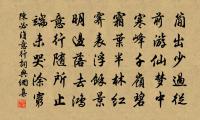 簡出少過從
前游仙夢中
寒峰千嶺碧
霜葉半林紅
霽表浮餘景
明邊去鴻
意行隨所止
端未哭塗窮
陳必復意行詞興網